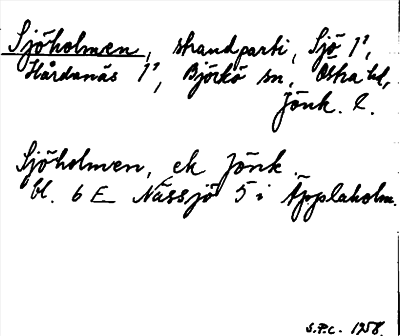 Sjöholmen, strandparti, Sjö 1²,
Hårdanäs 1², Björkö sn, Östra hd,
Jönk. l.
Sjöholmen, ek Jönk
bl. 6 E Nässjö 5 i Äpplaholm.
S.P.C. 1958.